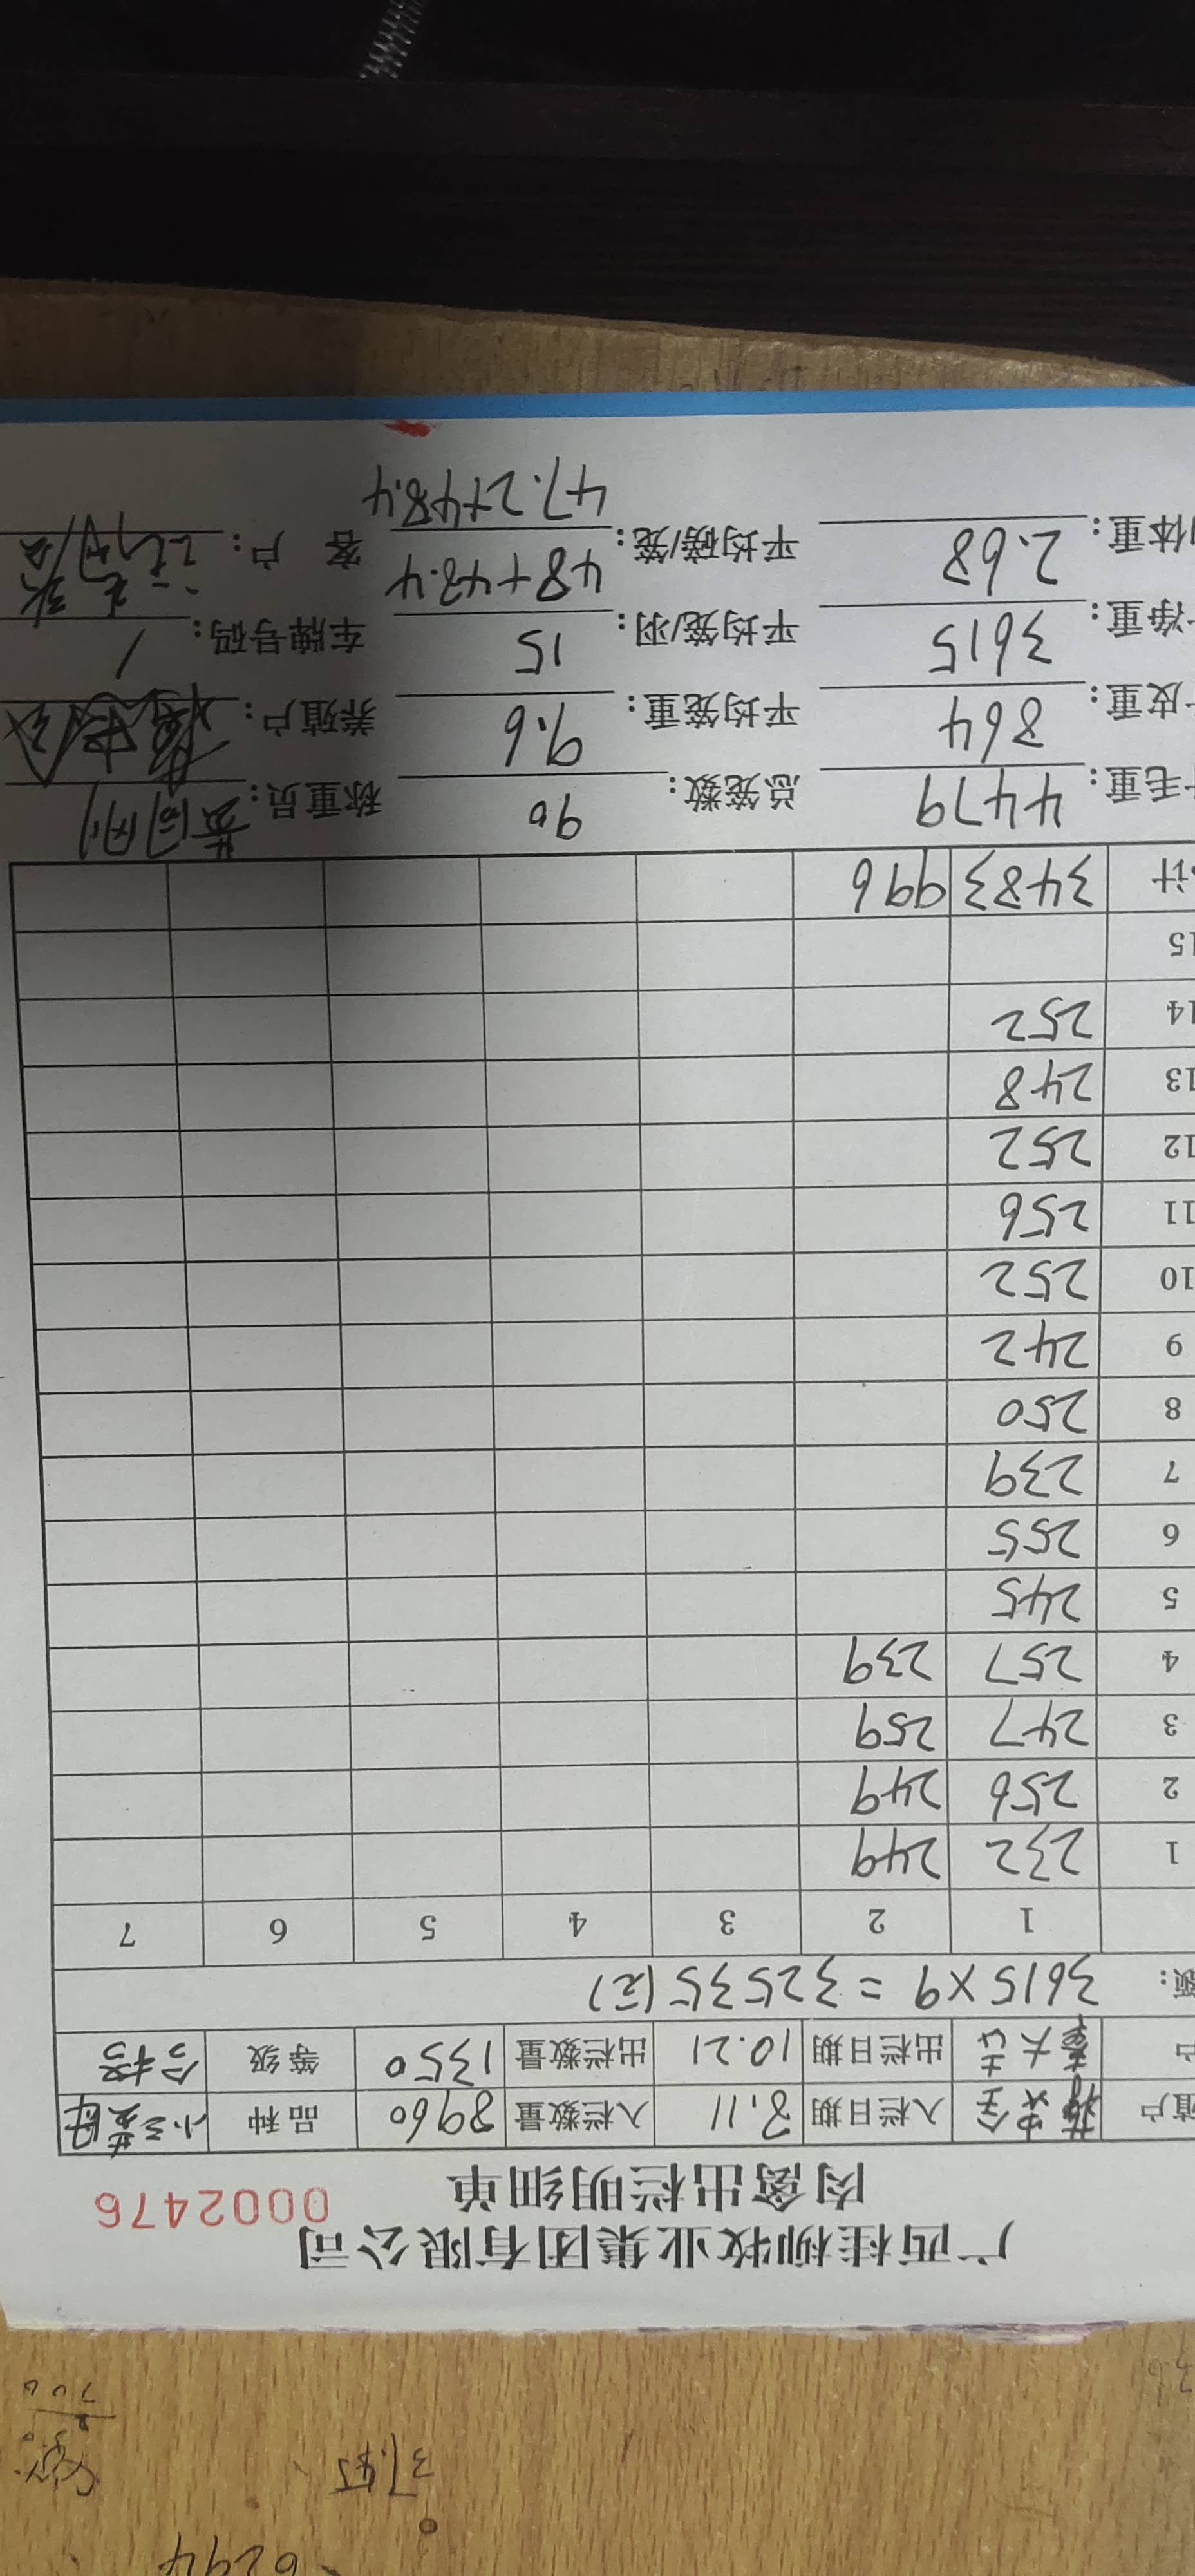 广西桂柳牧业集团有限公司
肉禽出栏明细单 0002476
殖户 入栏日期 8.11 入栏数量 8960 品种 小三黄
户 出栏日期 10.21 出栏数量 1350 等级 合格
额: 3615×9=32535(元)
1 2 3 4 5 6 7
1 232 249
2 256 249
3 247 259
4 257 239
5 245
6 255
7 239
8 250
9 242
10 252
11 256
12 252
13 248
14 252
15
计 3483 996
毛重: 4479 总笼数: 90 称重员:
皮重: 864 平均笼重: 9.6 养殖户:
净重: 3615 平均笼/羽: 15 车牌号码: /
体重: 2.68 平均磅/笼: 48+48.4 客 户:
47.2+48.4
37.45
6294